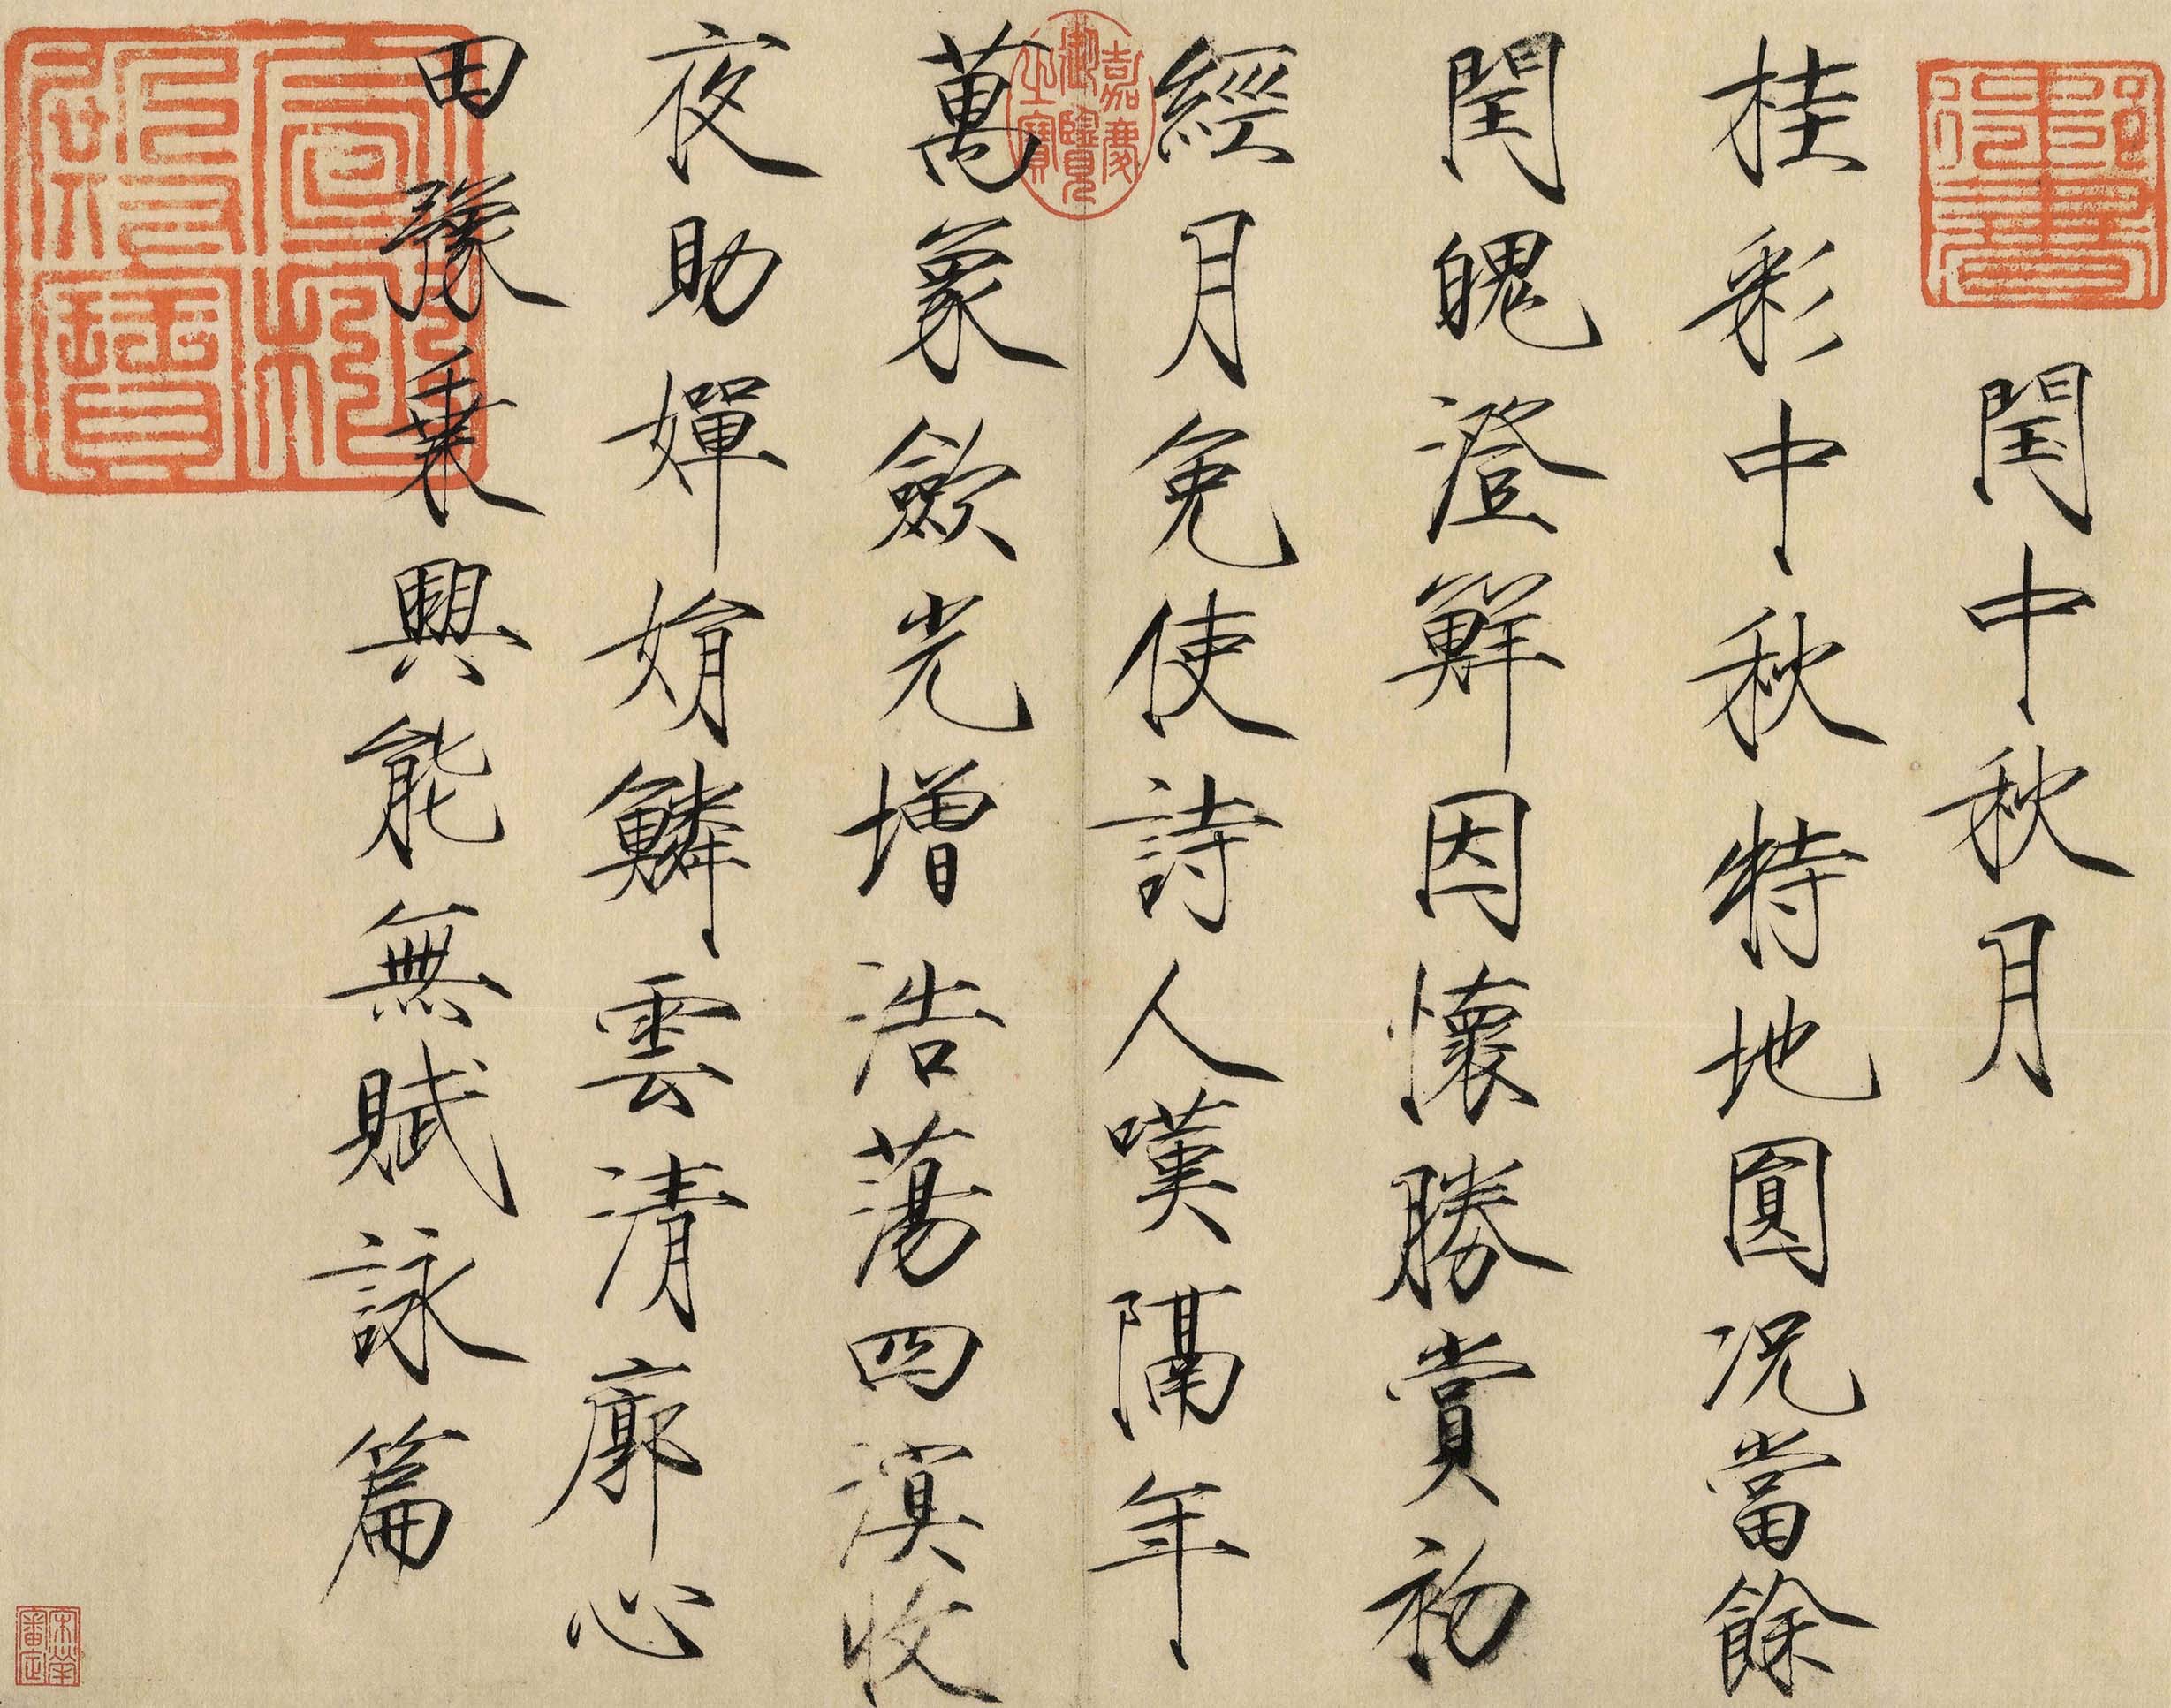 閏中秋月
桂彩中秋特地圓况當餘
閏魄澄鮮因懷勝賞初
經月免使詩人嘆隔年
萬象斂光增浩蕩四溟收
夜助嬋娟鱗雲清廓心
田豫乗興能無賦詠篇
嘉慶
御覽
之寶